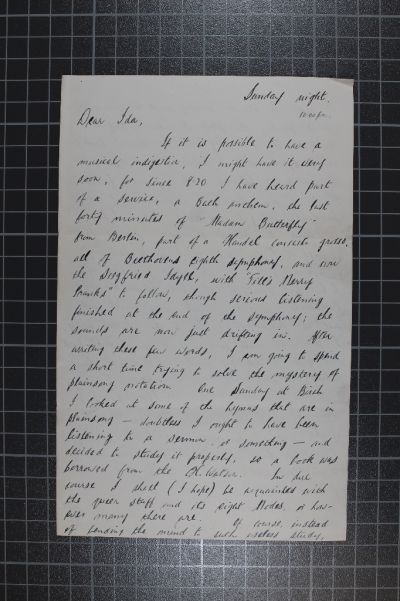 Sunday night.
10.10 p.m.
Dear Ida,
If it is possible to have a
musical indigestion, I might have it very
soon, for since 8.20 I have heard part
of a service, a Bach anthem, the last
forty minutes of "Madam Butterfly"
from Berlin, part of a Handel concerto grosso,
all of Beethovens Eighth Symphony, and now
the Siegfried Idyll, with "Till's Merry
Pranks" to follow, though serious listening
finished at the end of the symphony; the
sounds are now just drifting in. After
writing these few words, I am going to spend
a short time trying to solve the mystery of
plainsong notation. One Sunday at Birch
I looked at some of the hymns that are in
plainsong – doubtless I ought to have been
listening to a sermon or something – and
decided to study it properly, so a book was
borrowed from the Watson. In due
course I shall (I hope) be acquainted with
the queer stuff and its eight Modes, or how-
ever many there are. Of course, instead
of bending the mind to such useless study,